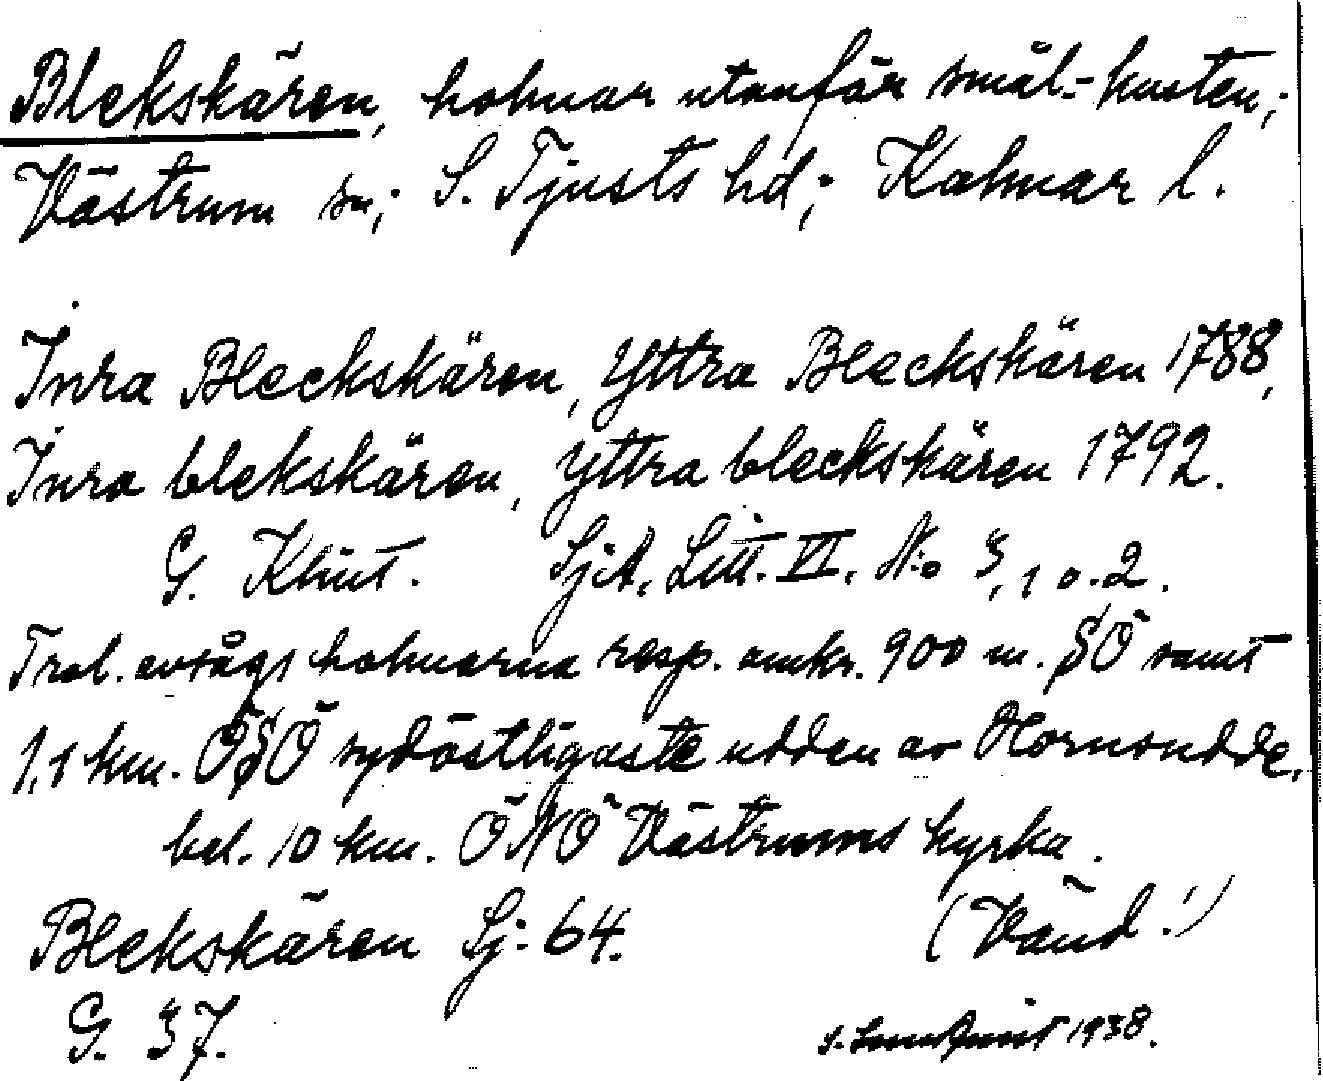 Blekskären, holmar utanför smål-kusten;
Västrum sn; S. Tjusts hd; Kalmar l.
Inra Bleckskären, Yttra Bleckskären 1788,
Inra blekskären, Yttra bleckskären 1792.
G. Klint. Sjöt. Litt. VI. No 3, 1 o. 2.
Trol. avsågs holmarna resp. omkr. 900 m. SÖ samt
1,1 km. ÖSÖ sydöstligaste udden av Hornsudde,
bel. 10 km. ÖNÖ Västrums kyrka.
Blekskären Sj. 64. (Vänd!)
G. 37. 1938.